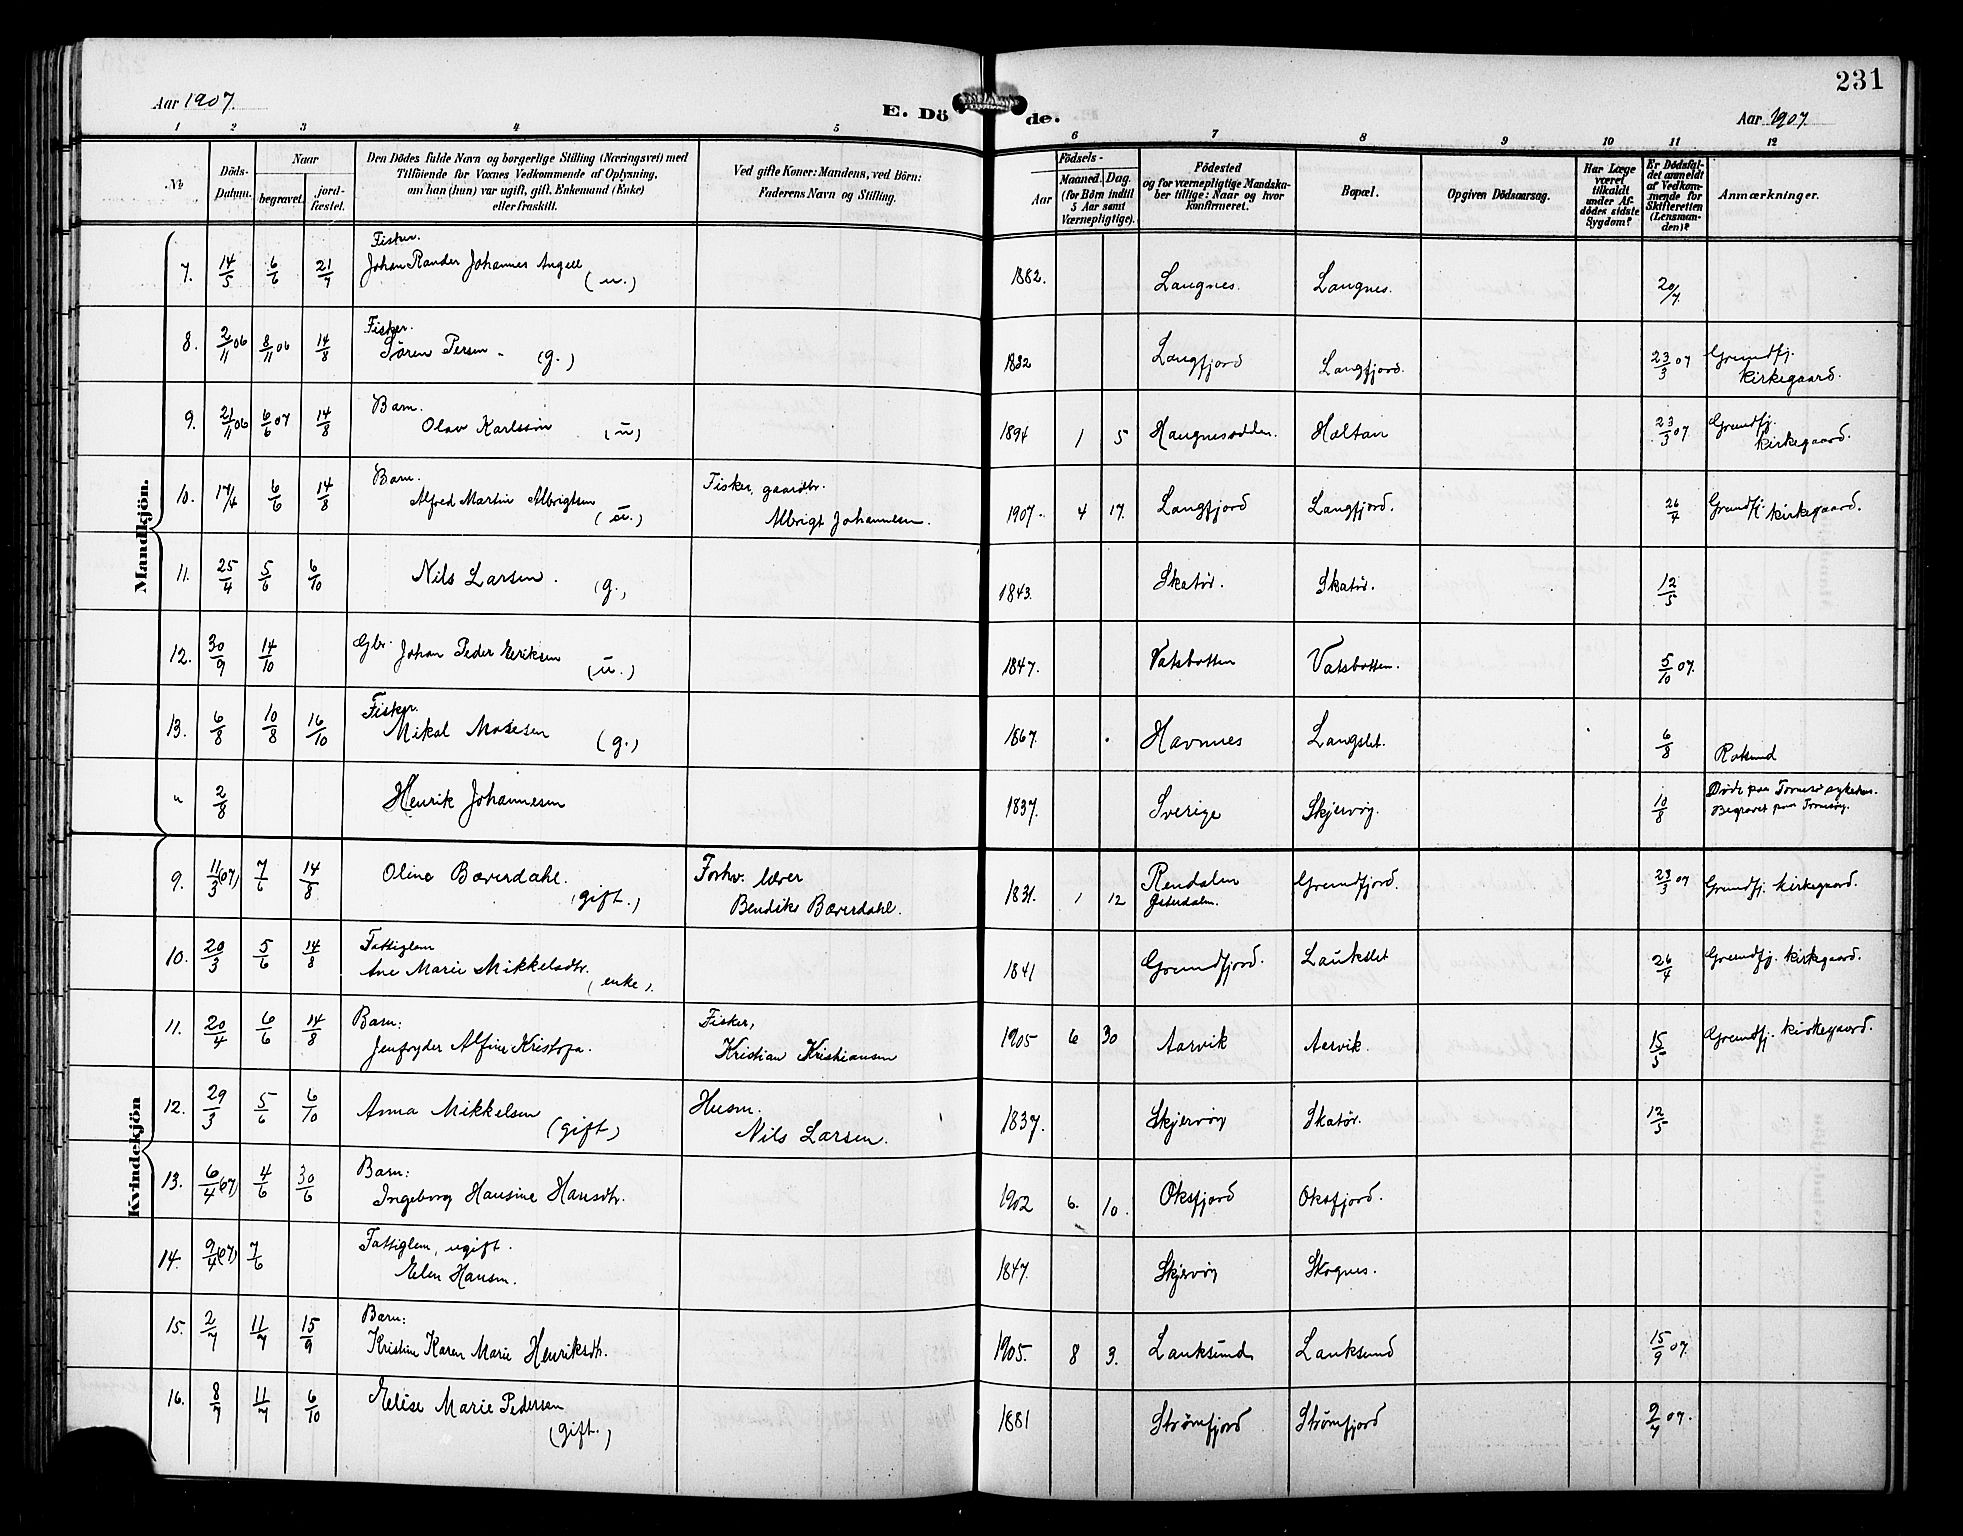 231
Aar 1907.
E. Dö de.
Aar 1907
1 2 3 4 5 6 7 8 9 10 11 12
No
Döds-Datum.
Naar
begravet.
jord-fæstet.
Den Dödes fulde Navn og borgerlige Stilling (Næringsvei) med
Tilföiende for Voxnes Vedkommende af Oplysning,
om han (hun) var ugift, gift, Enkemand (Enke)
eller fraskilt.
Ved gifte Koner: Mandens, ved Börn:
Faderens Navn og Stilling.
Födsels-
Aar
Maaned. Dag.
(for Börn indtil
5 Aar samt
Værnepligtige).
Födested
og for værnepligtige Mandska-
ber tillige: Naar og hvor
konfirmeret.
Bopæl.
Opgiven Dödsaarsag.
Har Læge
været
tilkaldt
under Af-
dödes sidste
Sygdom?
Er Dödsfal-
det anmeldt
af Vedkom-
mende for
Skifteretten
(Lensman-
den)?
Anmærkninger.
Mandkjön.
7. 14/5 6/6 21/7 Fisker. Johan Rander Johannes Angell (u.) 1882. Langnes. Langnes. 20/7.
8. 2/11 06 8/11 06 14/8 Fisker. Sören Persen. (g.) 1832 Langfjord Langfjord. 23/3 07 Grundfj. kirkegaard.
9. 21/11 06 6/6 07 14/8 Barn. Olav Karlssön (u) 1894 1 5 Haugnesodden. Haltan 23/3 07 Grundfj. kirkegaard.
10. 17/4 6/6 14/8 Barn. Alfred Martin Albrigtsen (u.) Fisker, gaardbr. Albrigt Johannesen. 1907. 4 17. Langfjord Langfjord. 26/4 Grundfj. kirkegaard.
11. 25/4 5/6 6/10 Nils Larsen. (g.) 1843. Skatør. Skatør. 12/5
12. 30/9 14/10 Gbr. Johan Peder Eriksen (u.) 1847. Vatsbotten Vatsbotten. 5/10 07.
13. 6/8 10/8 16/10 Fisker. Mikal Mosesen (g.) 1867. Havnnes Langslet. 6/8 Rotsund
" 2/8 Henrik Johannesen 1837. Sverige Skjervøy. 10/8 Døde paa Tromsø sykehus. Begravet paa Tromsøy.
Kvindekjön
9. 11/3 (07) 7/6 14/8 Oline Bæverdahl. (gift.) Forhv. lærer Bendiks Bæverdahl. 1831. 1 12 Rendalen Østerdalen. Grundfjord. 23/3 07 Grundfj. kirkegaard.
10. 20/3 5/6 14/8 Fattiglem Ane Marie Mikkelsdtr. (enke). 1841 Grundfjord. Laukslet 26/4 Grundfj. kirkegaard.
11. 20/4 6/6 14/8 Barn: Jenfryder Alfine Kristofa. Fisker, Kristian Kristiansen 1905 6 30 Aarvik Aarvik. 15/5 Grundfj. kirkegaard.
12. 29/3 5/6 6/10 Anna Mikkelsen (gift) Husm. Nils Larsen. 1837. Skjervøy Skatør. 12/5
13. 6/4 (07) 4/6 30/6 Barn: Ingeborg Hansine Hansdtr. 1902 6. 10. Oksfjord Oksfjord.
14. 9/4 (07) 7/6 Fattiglem, ugift. Elen Hansen. 1847. Skjervøy Skognes.
15. 2/7 11/7 15/9 Barn: Kristine Karen Marie Henriksdtr. 1905. 8 3. Lauksund Lauksund 15/9 07.
16. 8/7 11/7 6/10 Elise Marie Pedersen (gift.) 1881 Strømfjord Strømfjord 9/7 07.